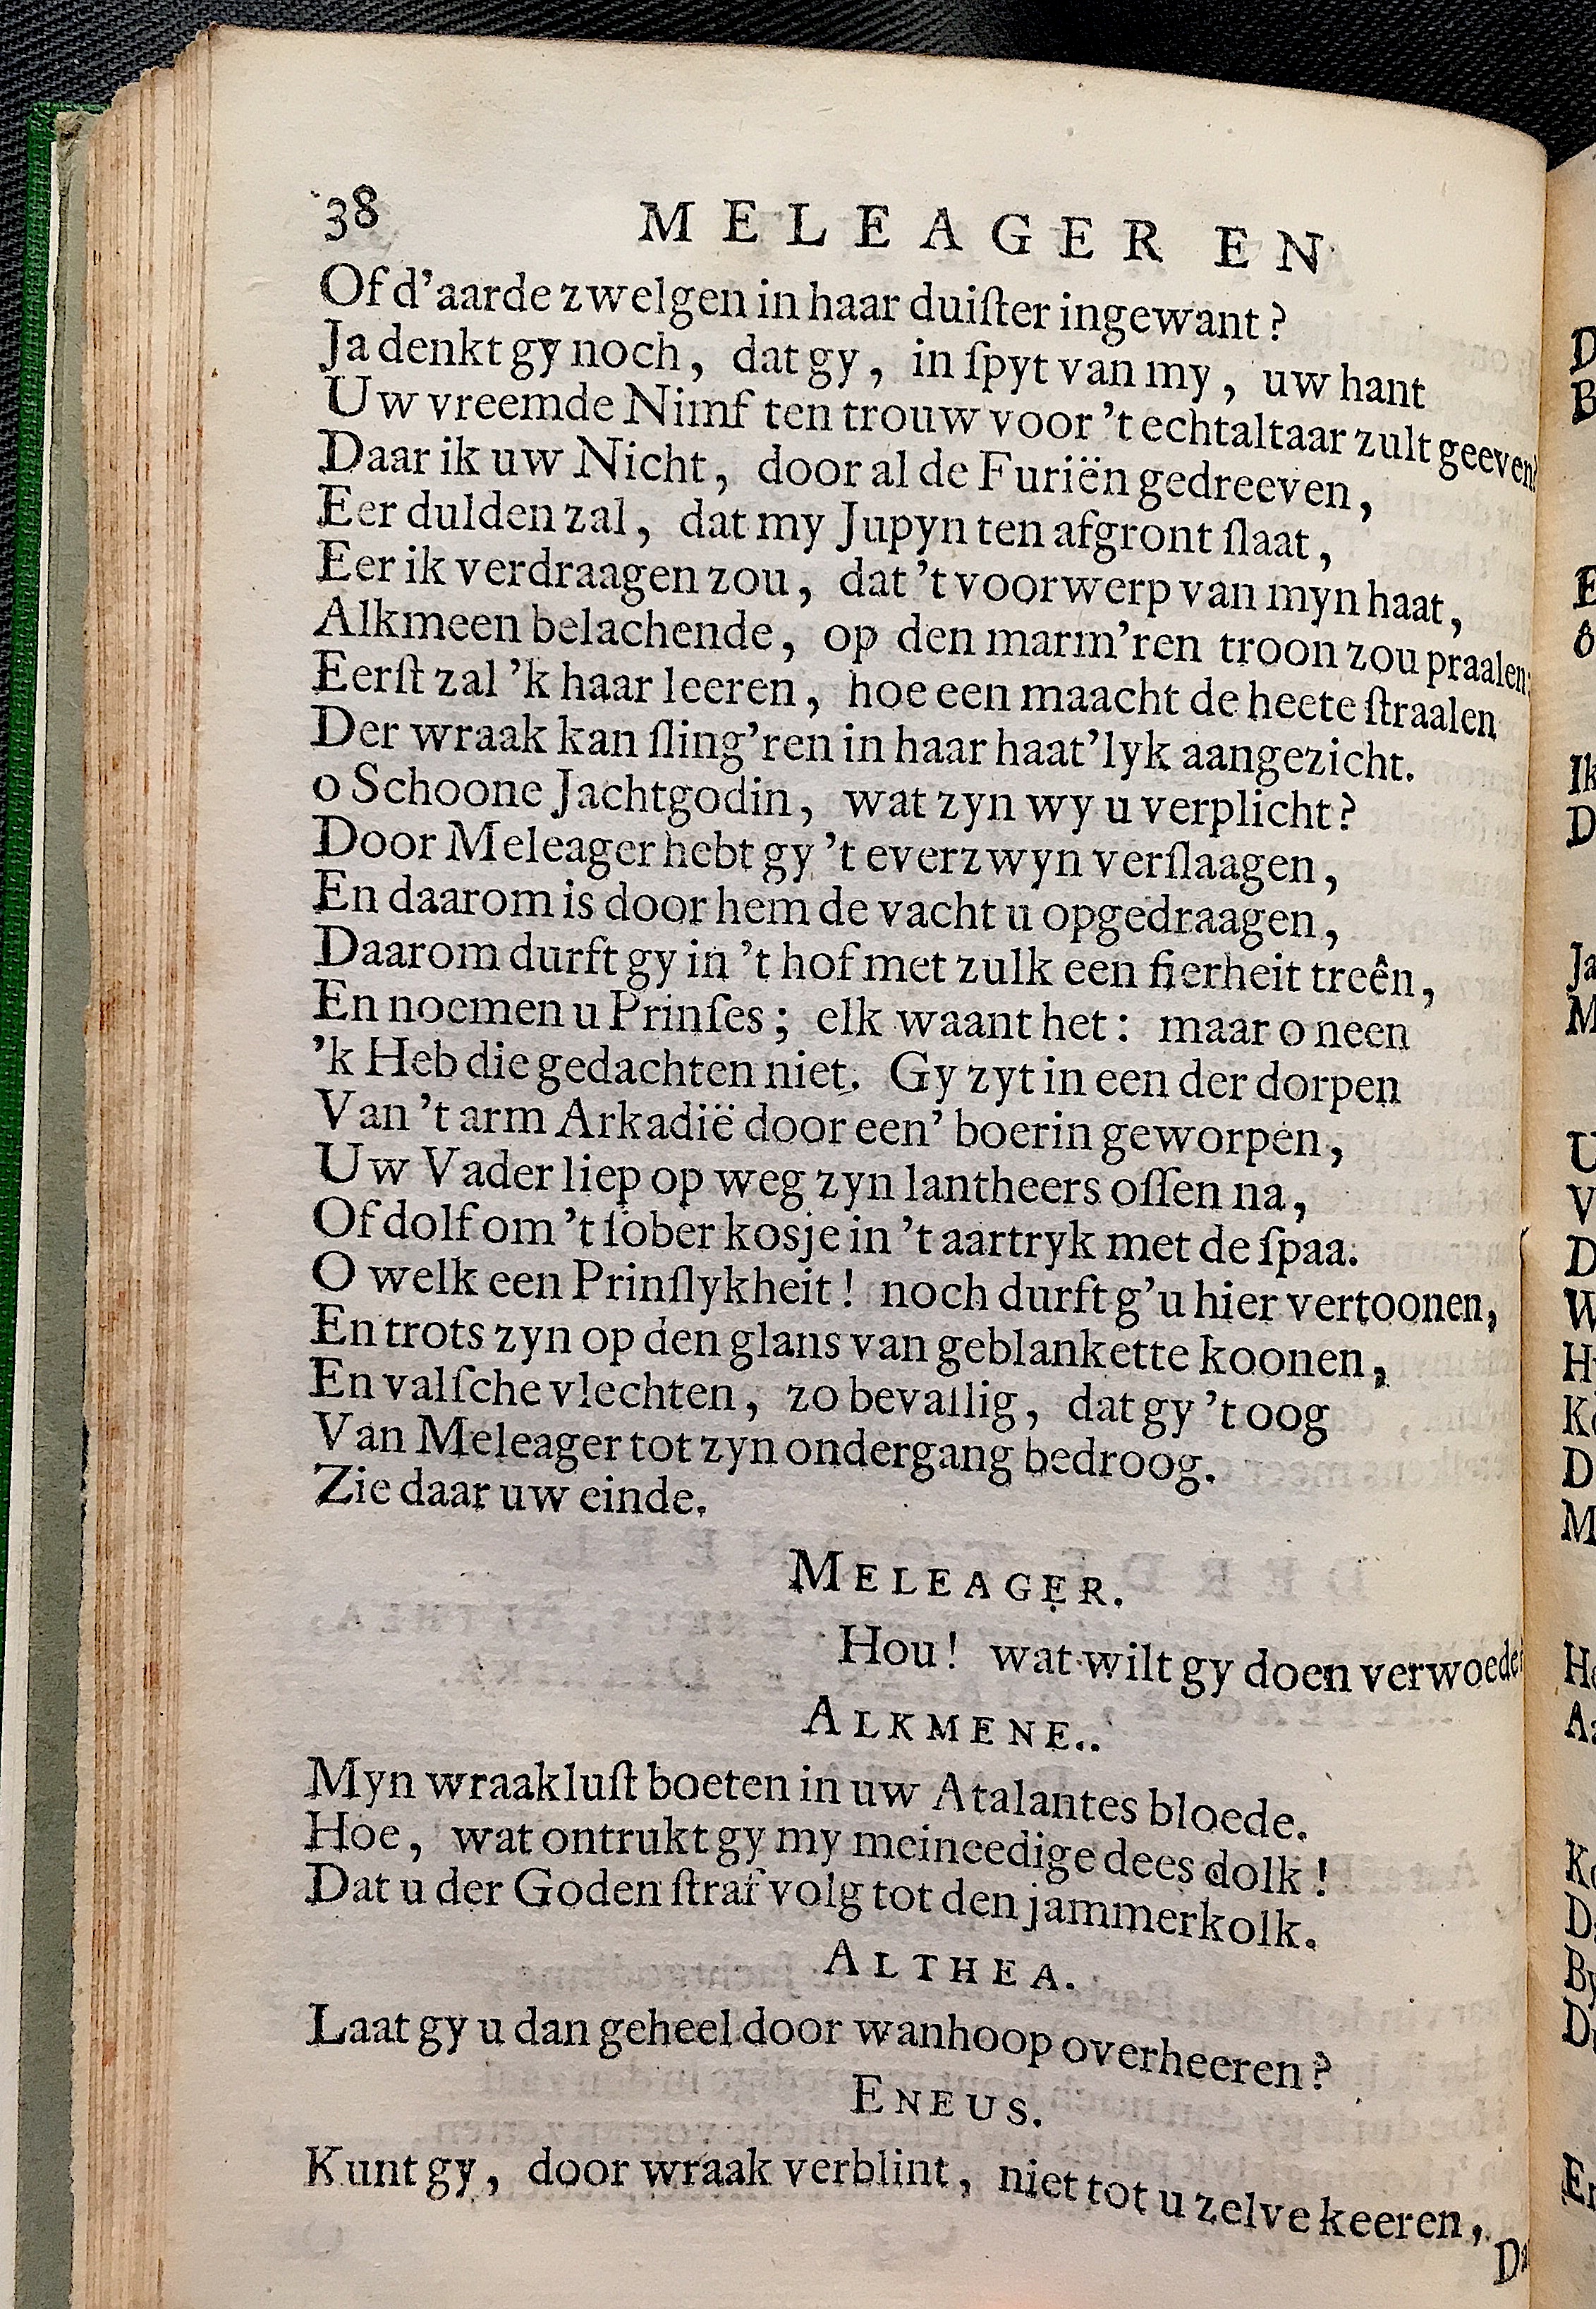 38 MELEAGER EN
Of d'aarde zwelgen in haar duiſter ingewant?
Ja denkt gy noch, dat gy, in ſpyt van my, uw hant
Uw vreemde Nimf ten trouw voor 't echtaltaar zult geeven?
Daar ik uw Nicht, door al de Furiën gedreeven,
Eer dulden zal, dat my Jupyn ten afgront ſlaat,
Eer ik verdraagen zou, dat 't voorwerp van myn haat,
Alkmeen belachende, op den marm'ren troon zou praalen:
Eerſt zal 'k haar leeren, hoe een maacht de heete ſtraalen
Der wraak kan ſling'ren in haar haat'lyk aangezicht.
o Schoone Jachtgodin, wat zyn wy u verplicht?
Door Meleager hebt gy 't everzwyn verſlaagen,
En daarom is door hem de vacht u opgedraagen,
Daarom durft gy in 't hof met zulk een fierheit treên,
En noemen u Prinſes; elk waant het: maar o neen
'k Heb die gedachten niet. Gy zyt in een der dorpen
Van 't arm Arkadië door een' boerin geworpen,
Uw Vader liep op weg zyn lantheers oſſen na,
Of dolf om 't ſober kosje in 't aartryk met de ſpaa.
O welk een Prinſlykheit! noch durft g'u hier vertoonen,
En trots zyn op den glans van geblankette koonen,
En valſche vlechten, zo bevallig, dat gy 't oog
Van Meleager tot zyn ondergang bedroog.
Zie daar uw einde.
MELEAGER.
Hou! wat wilt gy doen verwoede?
ALKMENE..
Myn wraakluſt boeten in uw Atalantes bloede.
Hoe, wat ontrukt gy my meineedige dees dolk!
Dat u der Goden ſtraf volg tot den jammerkolk.
ALTHEA.
Laat gy u dan geheel door wanhoop overheeren?
ENEUS.
Kunt gy, door wraak verblint, niet tot u zelve keeren,